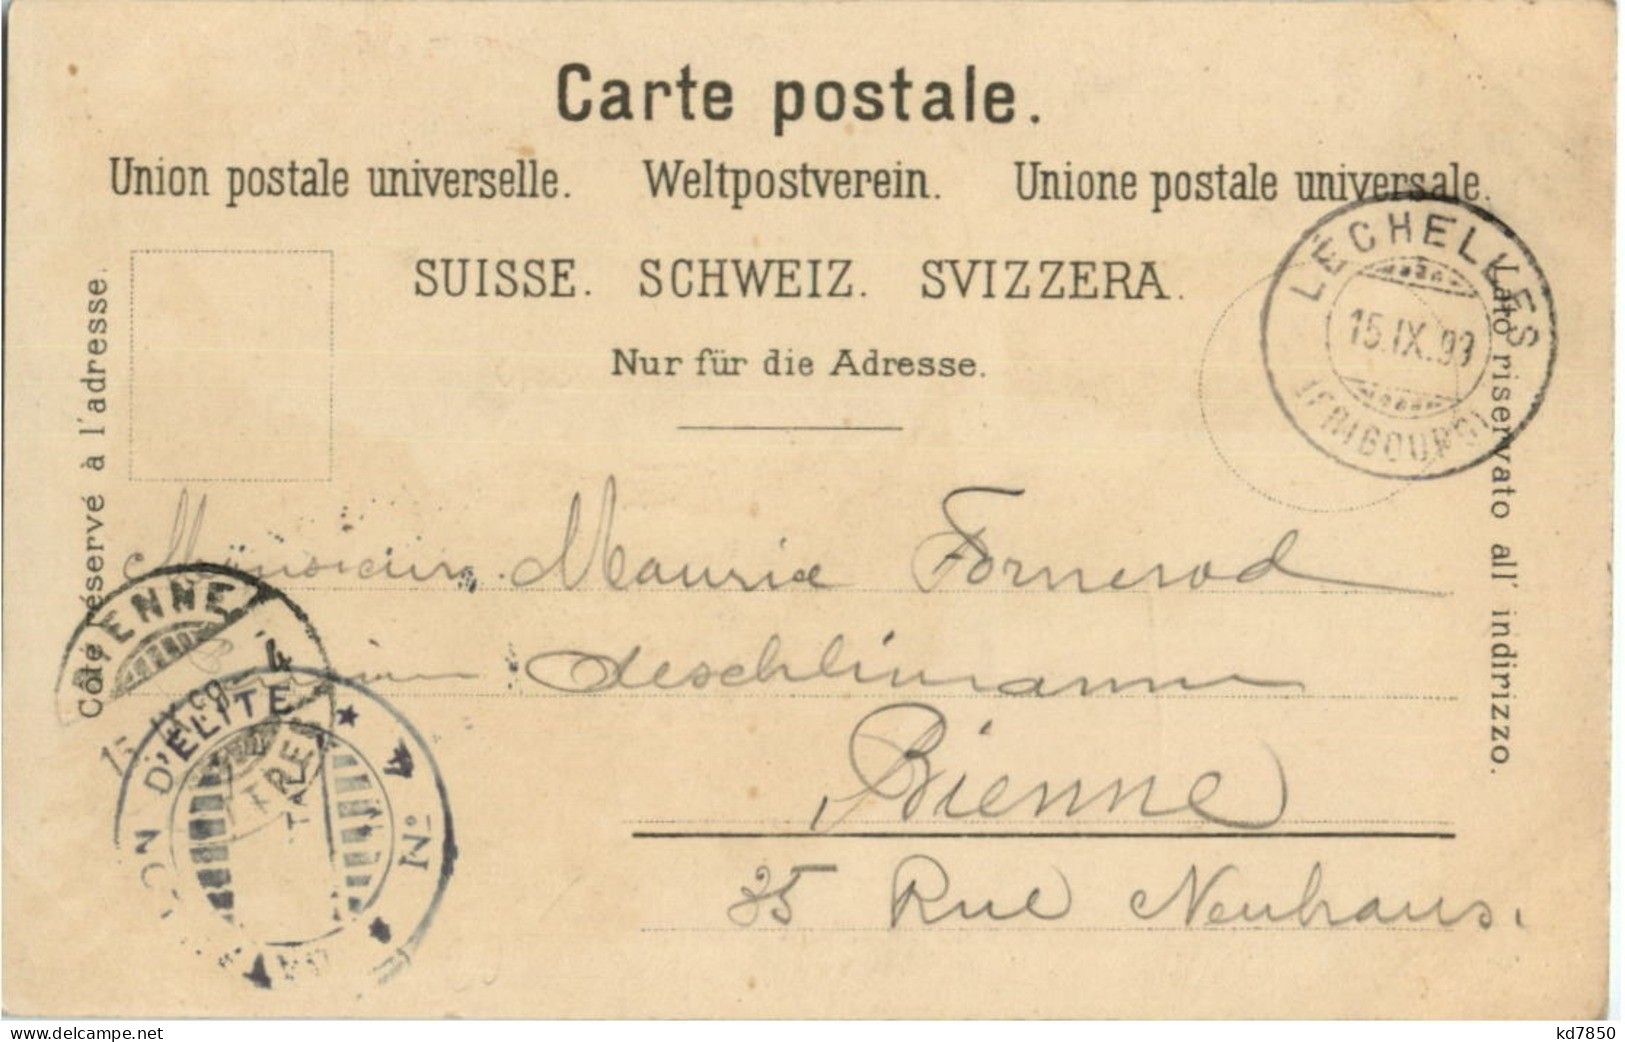 Carte postale.
Union postale universelle. Weltpostverein. Unione postale universale.
SUISSE. SCHWEIZ. SVIZZERA.
Nur für die Adresse.
Côté réservé à l'adresse.
Lato riservato all' indirizzo.
LÉCHELLES
15.IX.99
(FRIBOURG)
Monsieur Maurice Fornerod
Aeschlimann
Bienne
35 Rue Neuhaus.
BIENNE
D'ÉLITE
No
kd7850